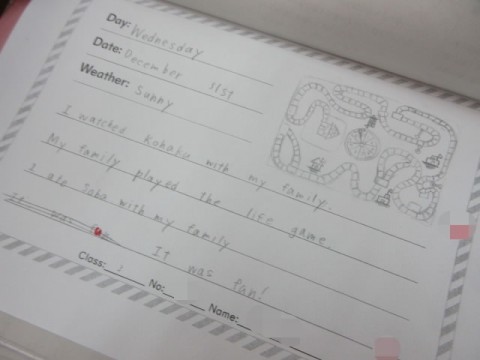 Day: Wednesday
Date: December 31st
Weather: Sunny
I watched Kohaku with my family.
My family played the life game.
I ate Soba with my family
It was fun!
Class: No: Name: